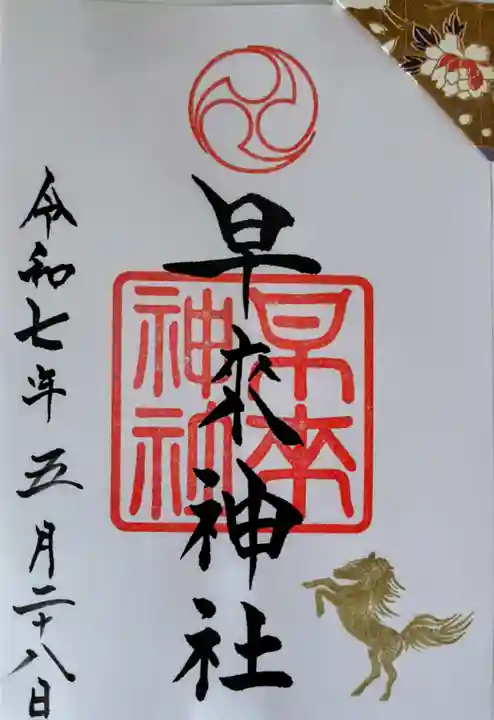 早來神社
早来神社
令和七年五月二十八日